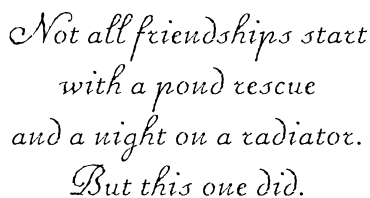 Not all friendships start
with a pond rescue
and a night on a radiator.
But this one did.